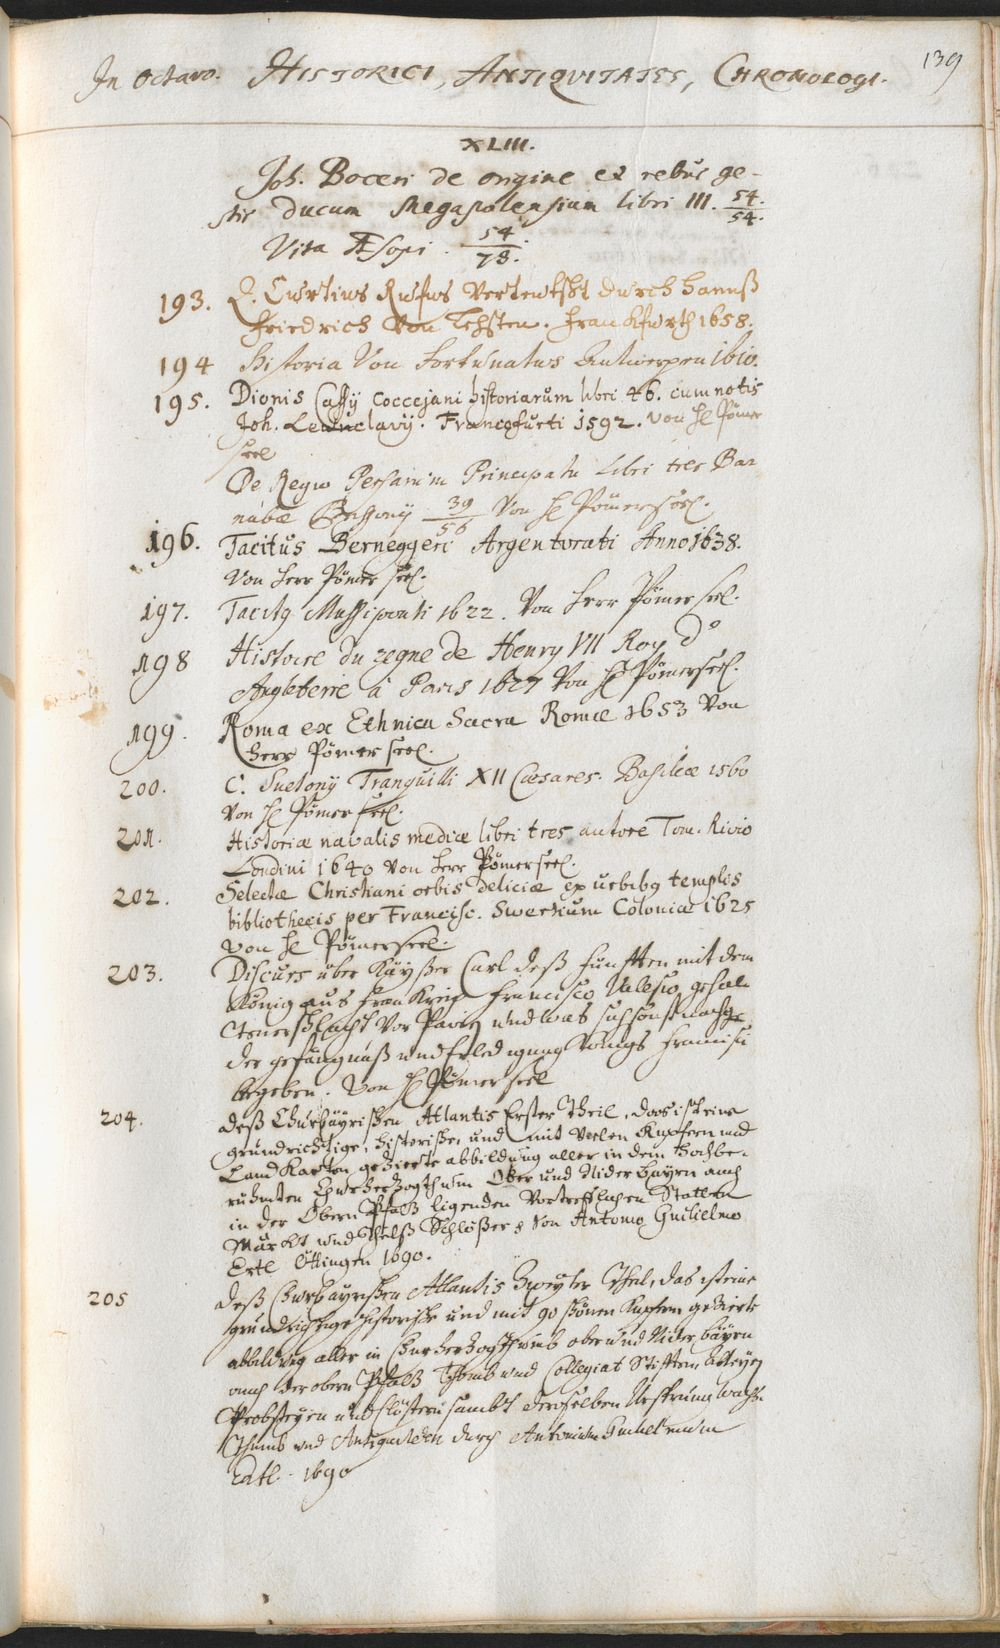 139
In Octavo. HISTORICI, ANTIQVITATES, CHRONOLOGI.
XLIII.
Joh. Boceri de origine et rebus ge-
stis Ducum Megapolensium libri III. 54./54.
Vita Æsopi. 54./78.
193. Q. Curtius Rufus Verteutscht durch Hannß
Friedrich Von Lehsten. Franckfurth 1658.
194 Historia Von Fortunatus Antwerpen 1610.
195. Dionis Cassij Coccejani historiarum libri 46. cum notis
Joh. Leunclavij. Francofurti 1592. Von H Pömer
seel
De Regio Persarum Principatu Libri tres Bar
nabæ Brissonij 39/56 Von H Pömer seel.
196. Tacitus Berneggeri Argentorati Anno 1638.
Von Herr Pömer seel.
197. Tacitq Mussiponti 1622. Von Herr Pömer seel.
198 Histoire du regne de Henry VII Roy d'
Angleterre à Paris 1627 Von H Pömer seel.
199. Roma ex Ethnica Sacra Romæ 1653 Von
Herr Pömer seel.
200. C. Suetonij Tranquilli XII Cæsares. Basileæ 1560
Von H Pömer seel.
201. Historiæ navalis mediæ libri tres autore Tom. Rivio
Londini 1640 Von Herr Pömer seel.
202. Selectæ Christiani orbis deliciæ ex urbibq templis
bibliothecis per Francisc. Swertium Coloniæ 1625
Von H Pömer seel.
203. Discurs über Käyßer Carl deß Fünfften mit dem
König aus Franckreich Francisco Valesio gehal-
Schlacht Vor Pavia und was sich sonst
der gefängnuß und Erledigung Königs Francisci
begeben. Von H Pömer seel
204. Deß Churbäyrischen Atlantis Erster Theil, das ist eine
grundrichtige, historische, und mit Vielen Kupfern und
Land Karten gezierte abbildung aller in dem Hochbe-
rühmten Churherzogthum Ober und Nider Bäyrn auch
in der Obern Pfalz ligenden Vortrefflichen Stätten
Märckt und Schlößer Von Antonio Guilielmo
Ertl Öttingen 1690.
205 Deß Churbäyrischen Atlantis Zweyter Theil, das ist eine
grundrichtige historische und mit 90 schönen Kupfern gezierte
abbildung aller in Churherzogthumb ober und Nider bäyrn
auch der obern Pfalz und Collegiat Stifftern Abteyen
Probsteyen und Clöstern sambt derselben Ursprung Wachs-
thumb und Antiquiteten durch Antonium Guilielmum
Ertl. 1690